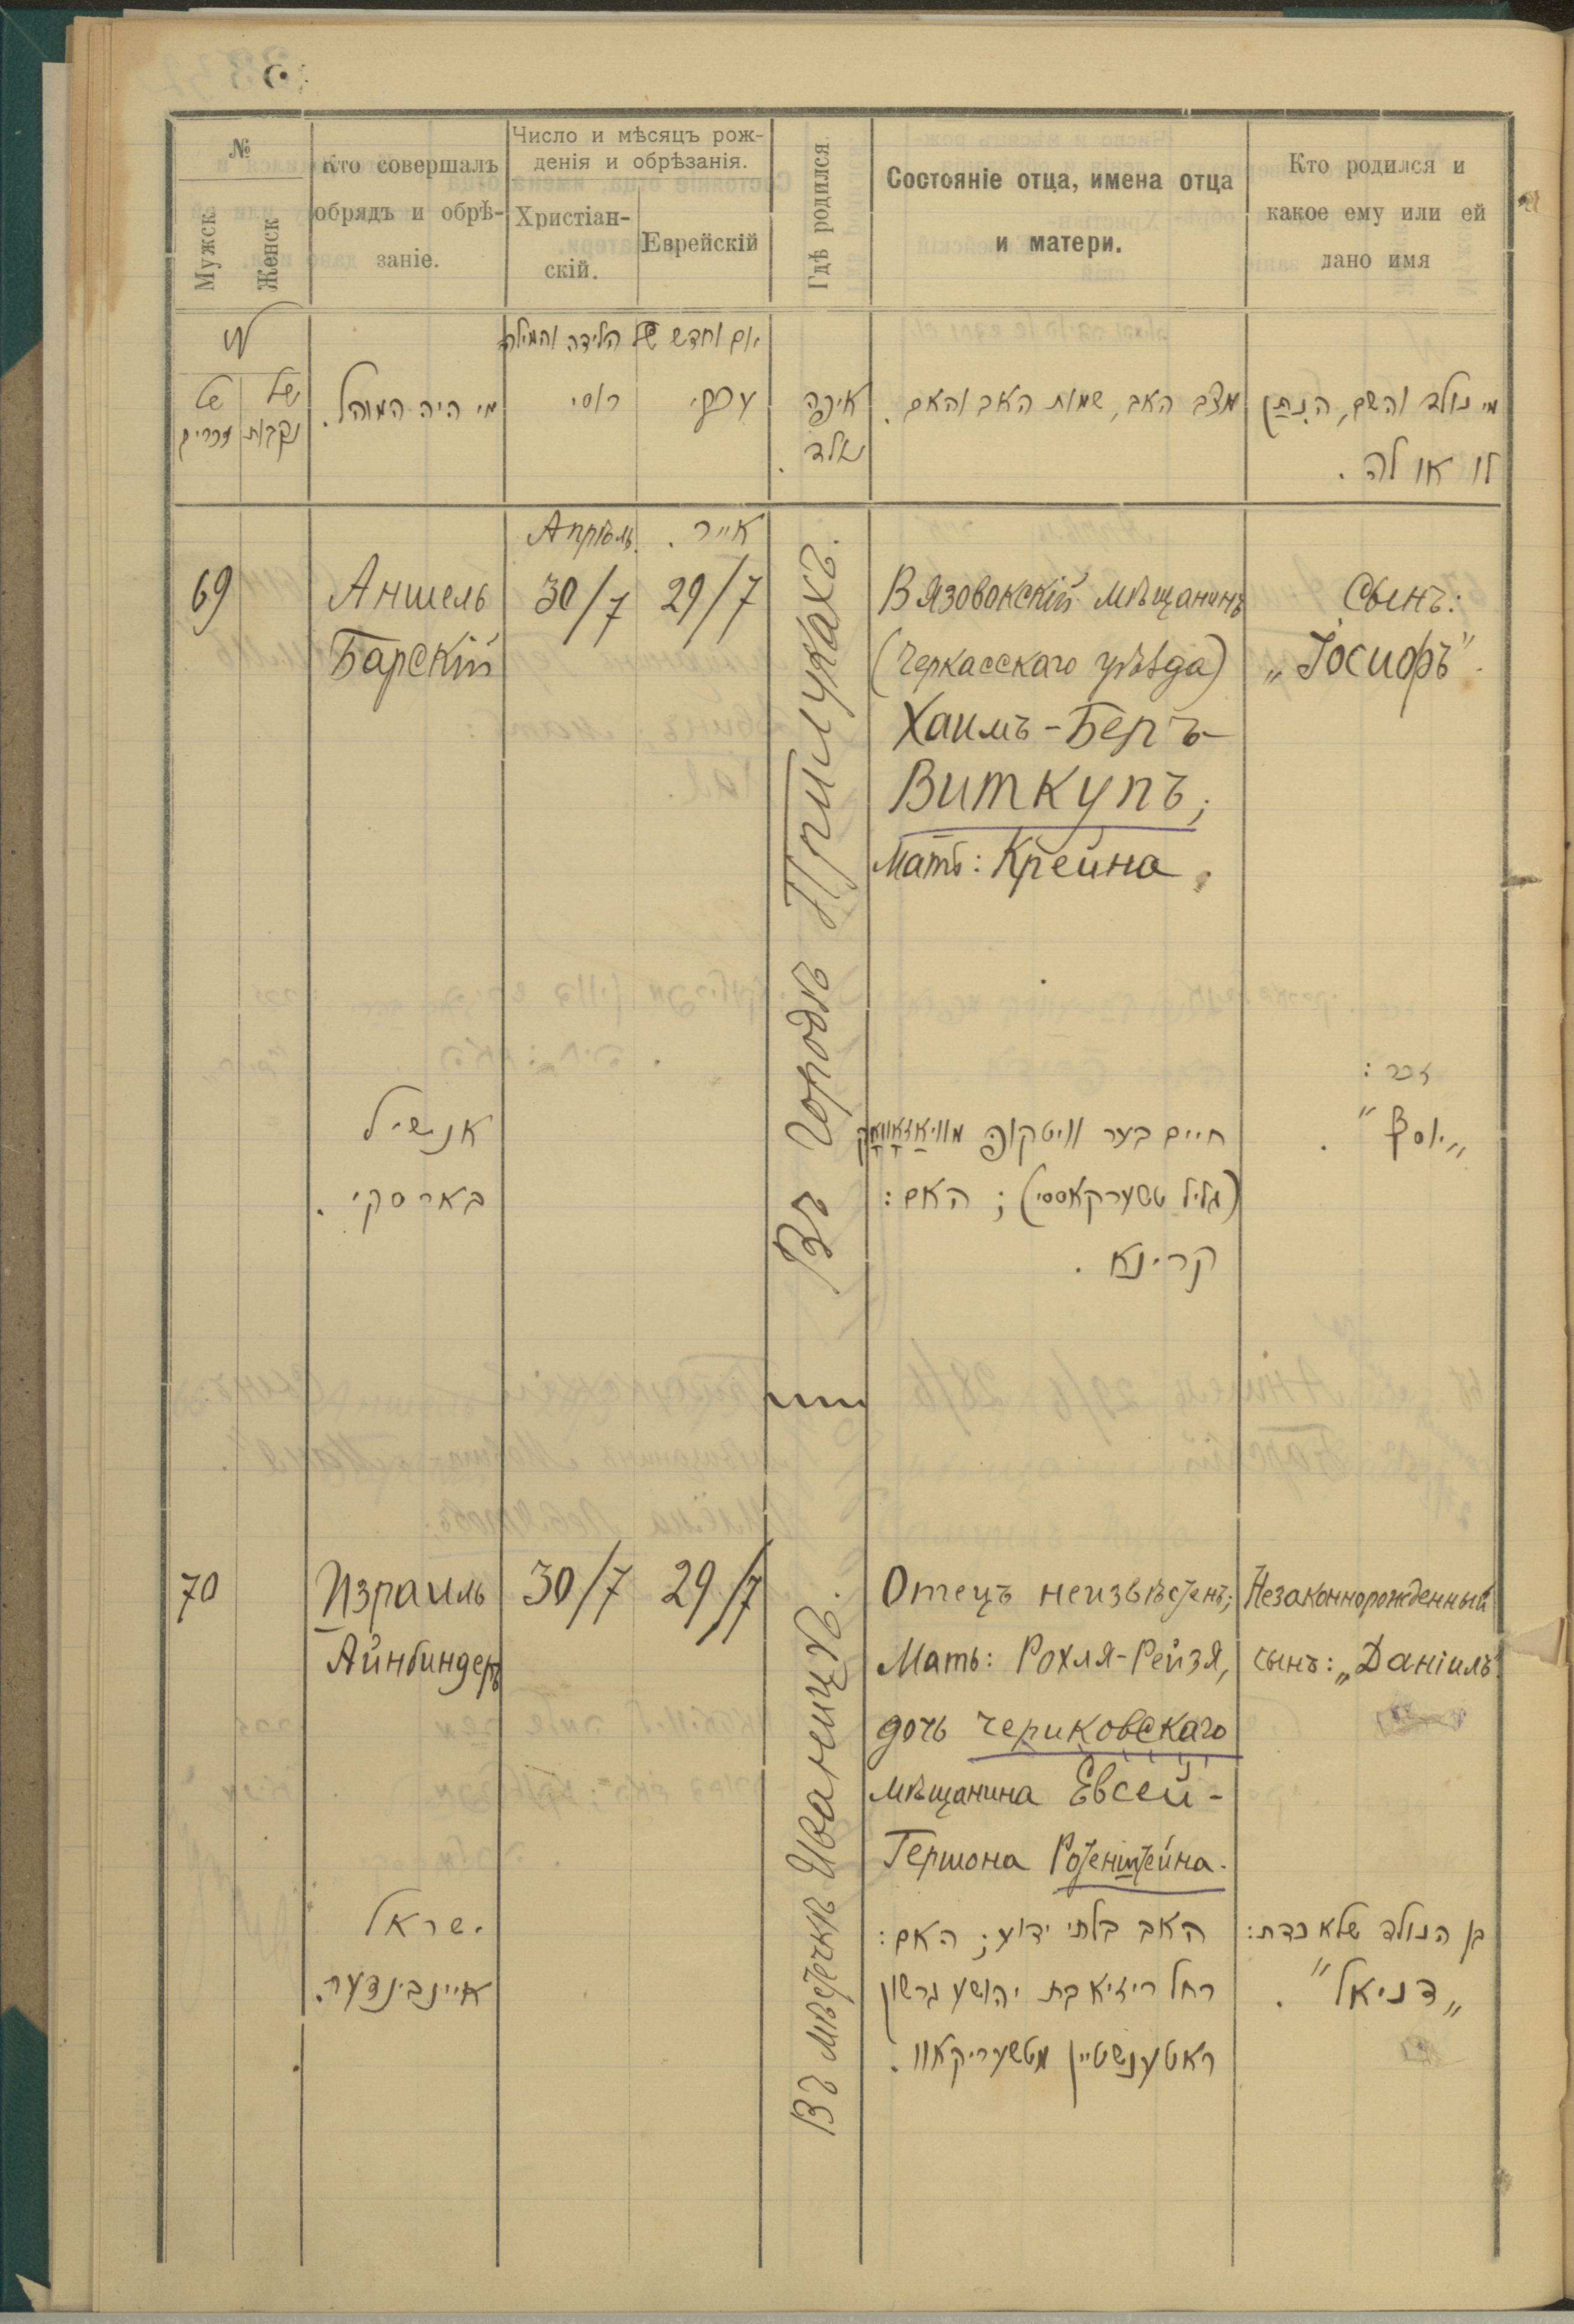 №
Мужск
Женск
Кто совершалъ
обрядъ и обрѣ-
заніе.
Число и мѣсяцъ рож-
денія и обрѣзанія.
Христіан-
скій.
Еврейскій
Гдѣ родился.
Состояніе отца, имена отца
и матери.
Кто родился и
какое ему или ей
дано имя
של
זכרים
של
נקבות
מי היה המוהל.
יום וחדש של הלידה והמילה
רוסי
עברי
איפה
נולד.
מצב האב, שמות האב והאם.
מי נולד והשם, הנתן
לו או לה.
Апрѣль.
אייר.
69
Аншель
Барскій
30/7
29/7
Въ городѣ Прилукахъ.
Вязовокскій мѣщанинъ
(Черкасскаго уѣзда)
Хаимъ-Беръ
Виткупъ;
Мать: Крейна.
Сынъ:
„Іосифъ".
אנשיל
בארסקי.
חיים בער וויטקופ מוויאזאוואק
(גליל טשערקאססי); האם:
קרינא.
זכר:
„יוסף".
70
Израиль
Айнбиндеръ
30/7
29/7
Въ мѣстечкѣ Иваницѣ.
Отецъ неизвѣстенъ;
Мать: Рохля-Рейзя,
дочь чериковскаго
мѣщанина Евсей-
Гершона Ротенштейна.
Незаконнорожденный
сынъ: „Даніилъ"
ישראל
איינבינדער.
האב בלתי ידוע; האם:
רחל רייזיא בת יהושע גרשון
ראטענשטיין מטשעריקאוו.
בן הנולד שלא כדת:
„דניאל".